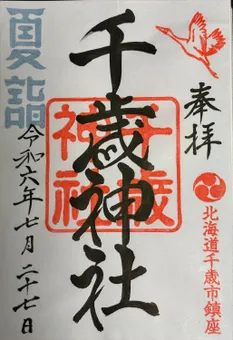 奉拝
北海道千歳市鎮座
千歳神社
千歳
神社
夏詣
令和六年七月二十七日